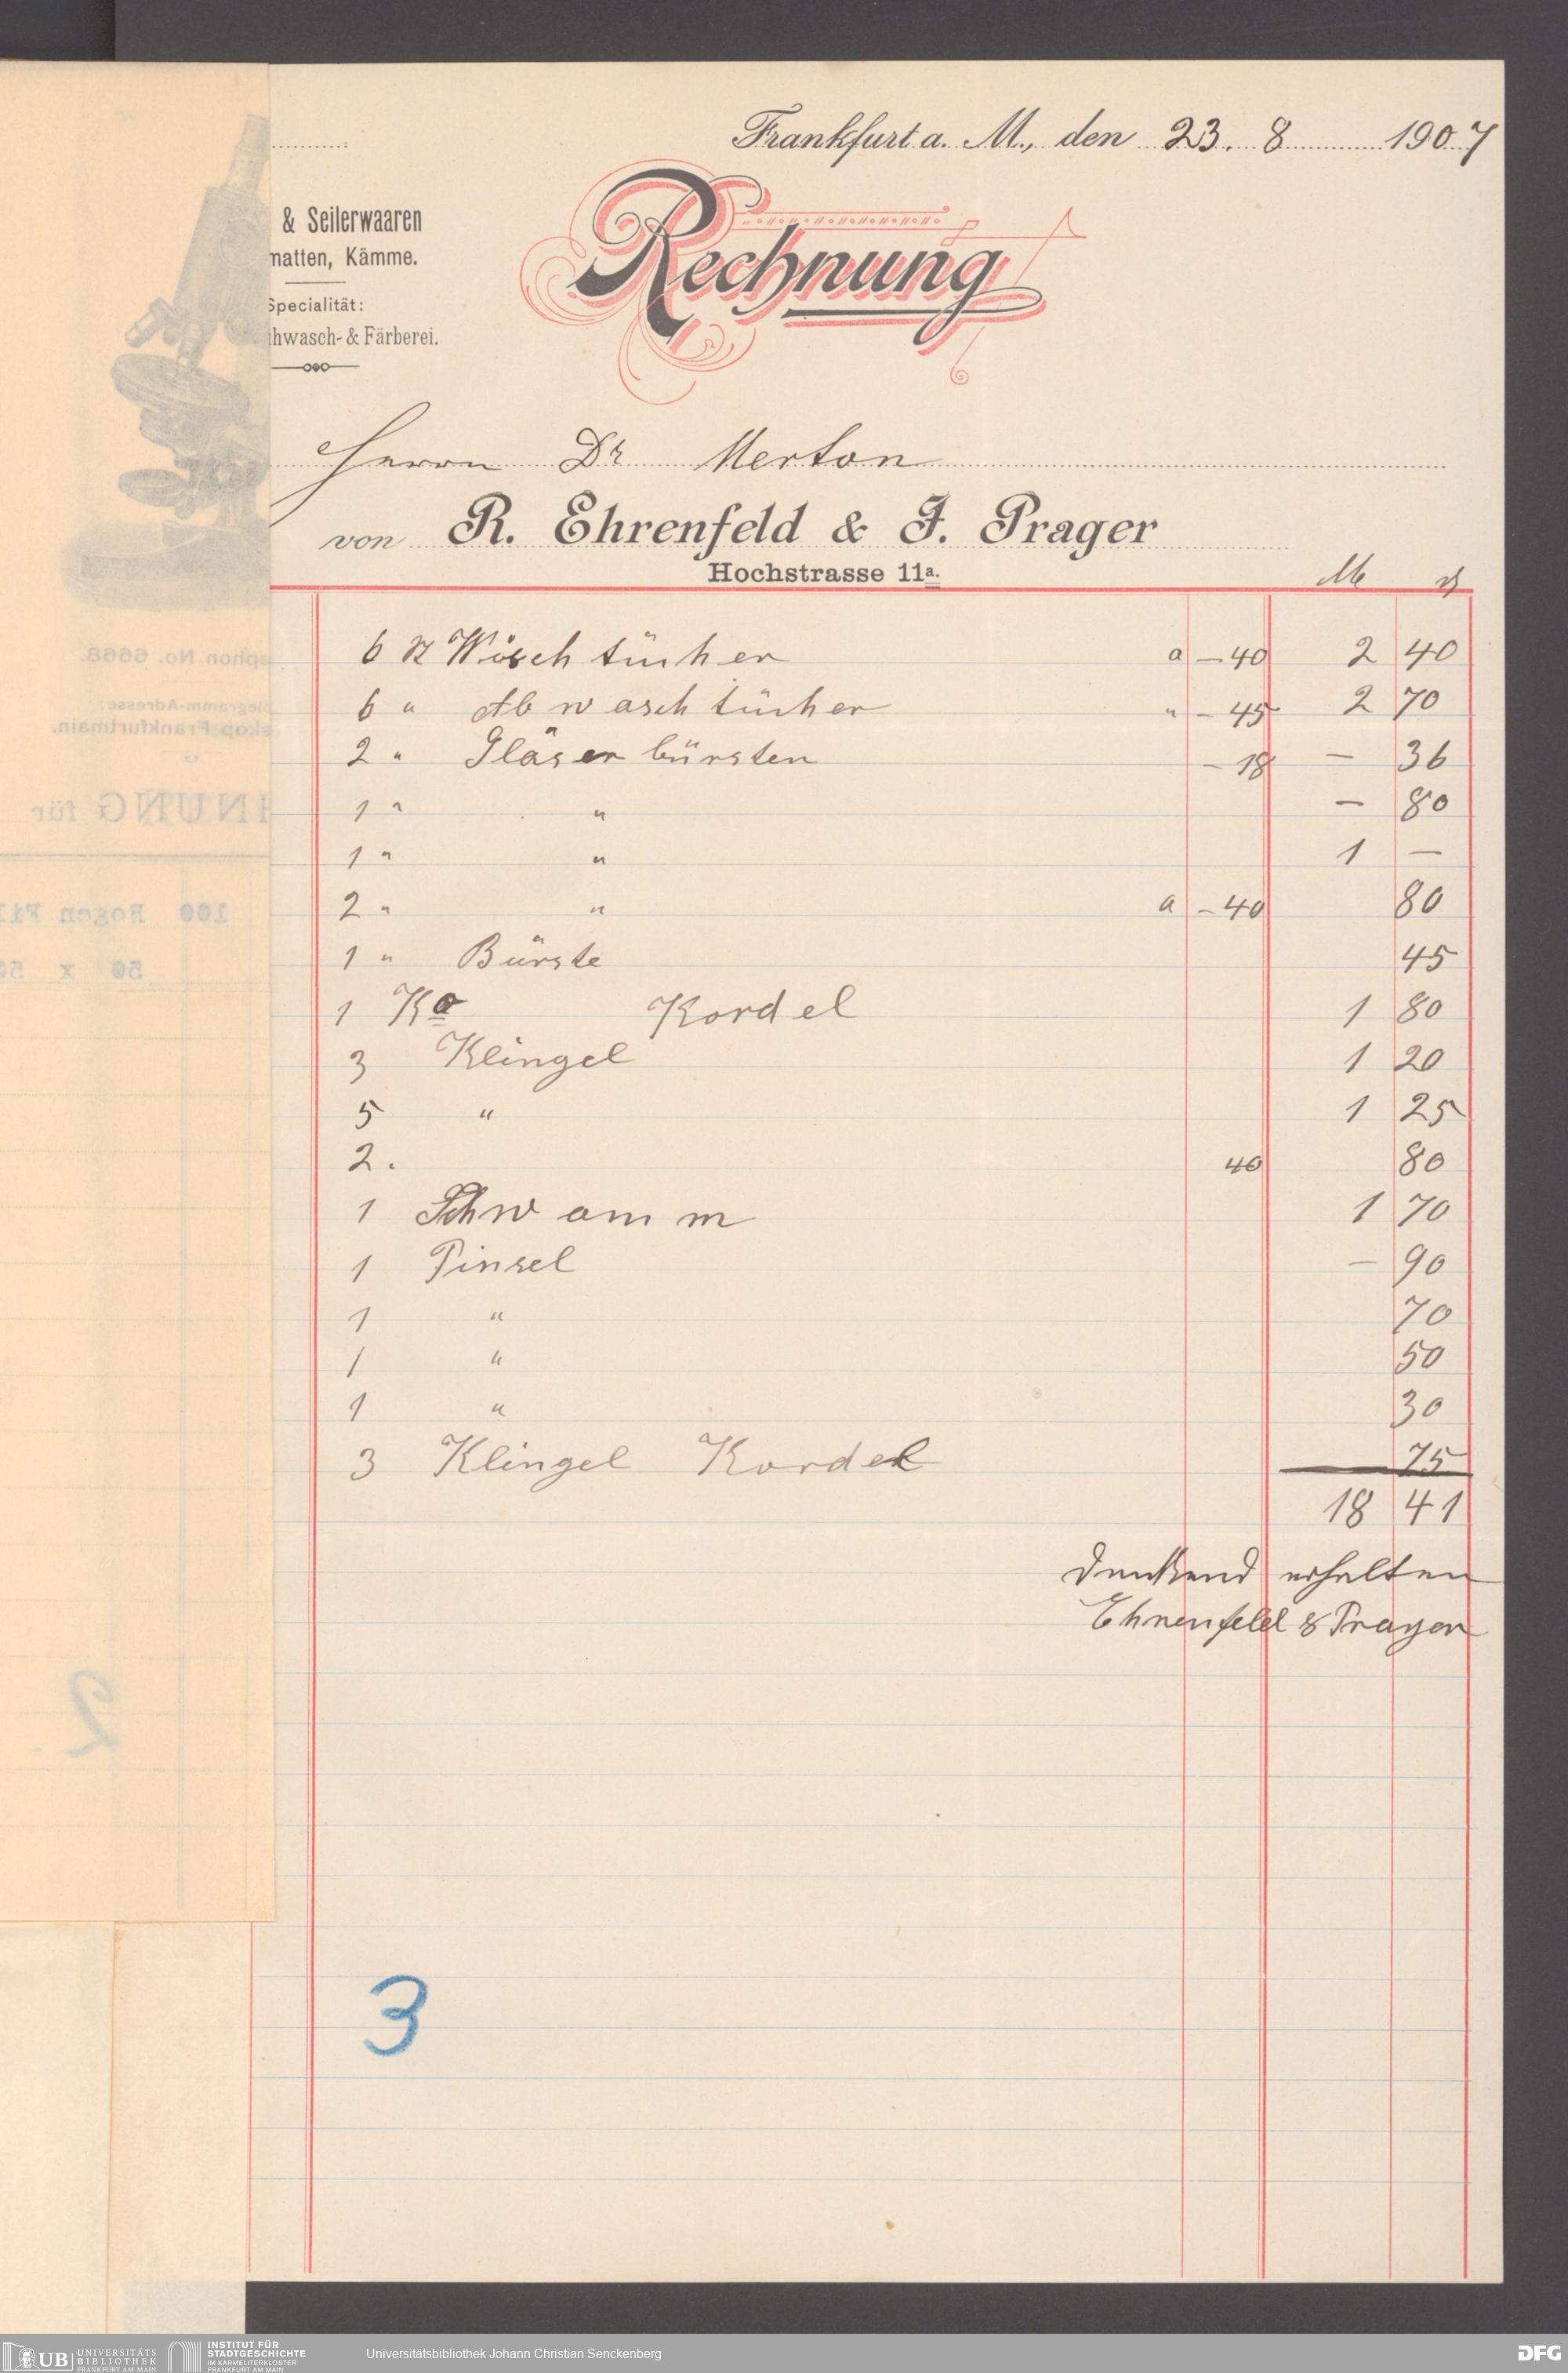 Frankfurt a. M., den 23. 8 1907
& Seilerwaaren
matten, Kämme.
Specialität:
hwasch- & Färberei.
Rechnung
Herrn Dr Merton
von R. Ehrenfeld & J. Prager
Hochstrasse 11a.
M ₰
6 St Wäschtücher a -40 2 40
6 " Abwaschtücher " -45 2 70
2 " Gläserbürsten -18 - 36
1 " " - 80
1 " " 1 -
2 " " a -40 80
1 " Bürste 45
1 Ko Kordel 1 80
3 Klingel 1 20
5 " 1 25
2. 40 80
1 Schwamm 1 70
1 Pinsel - 90
1 " 70
1 " 50
1 " 30
3 Klingel Kordel 75
18 41
dankend erhalten
Ehrenfeld & Prager
3
ephon No. 6668.
elegramm-Adresse:
skop Frankfurtmain.
HNUNG für
100 Bogen Fil
50 x 50
2
UB UNIVERSITÄTS
BIBLIOTHEK
FRANKFURT AM MAIN
INSTITUT FÜR
STADTGESCHICHTE
IM KARMELITERKLOSTER
FRANKFURT AM MAIN
Universitätsbibliothek Johann Christian Senckenberg
DFG